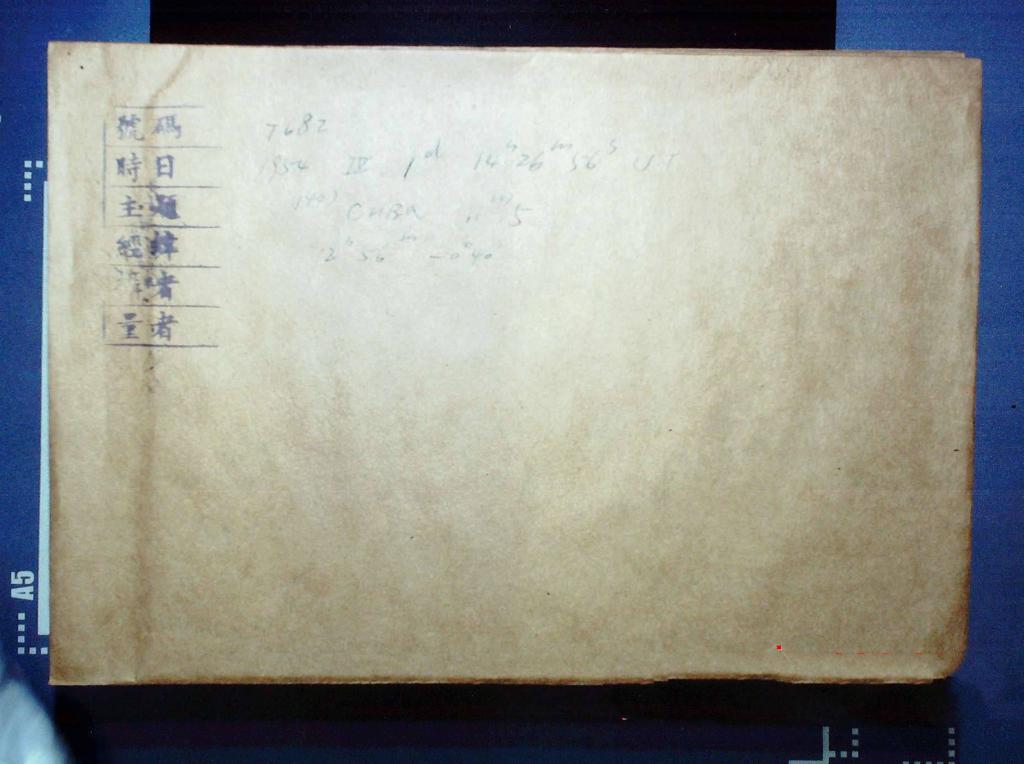 號碼 7682
時日 1954 IV 1d 14h 26m 56s UT
主題 (40) CUBA 11m5
經緯 2h 56m -0°40'
著者
量者
A5